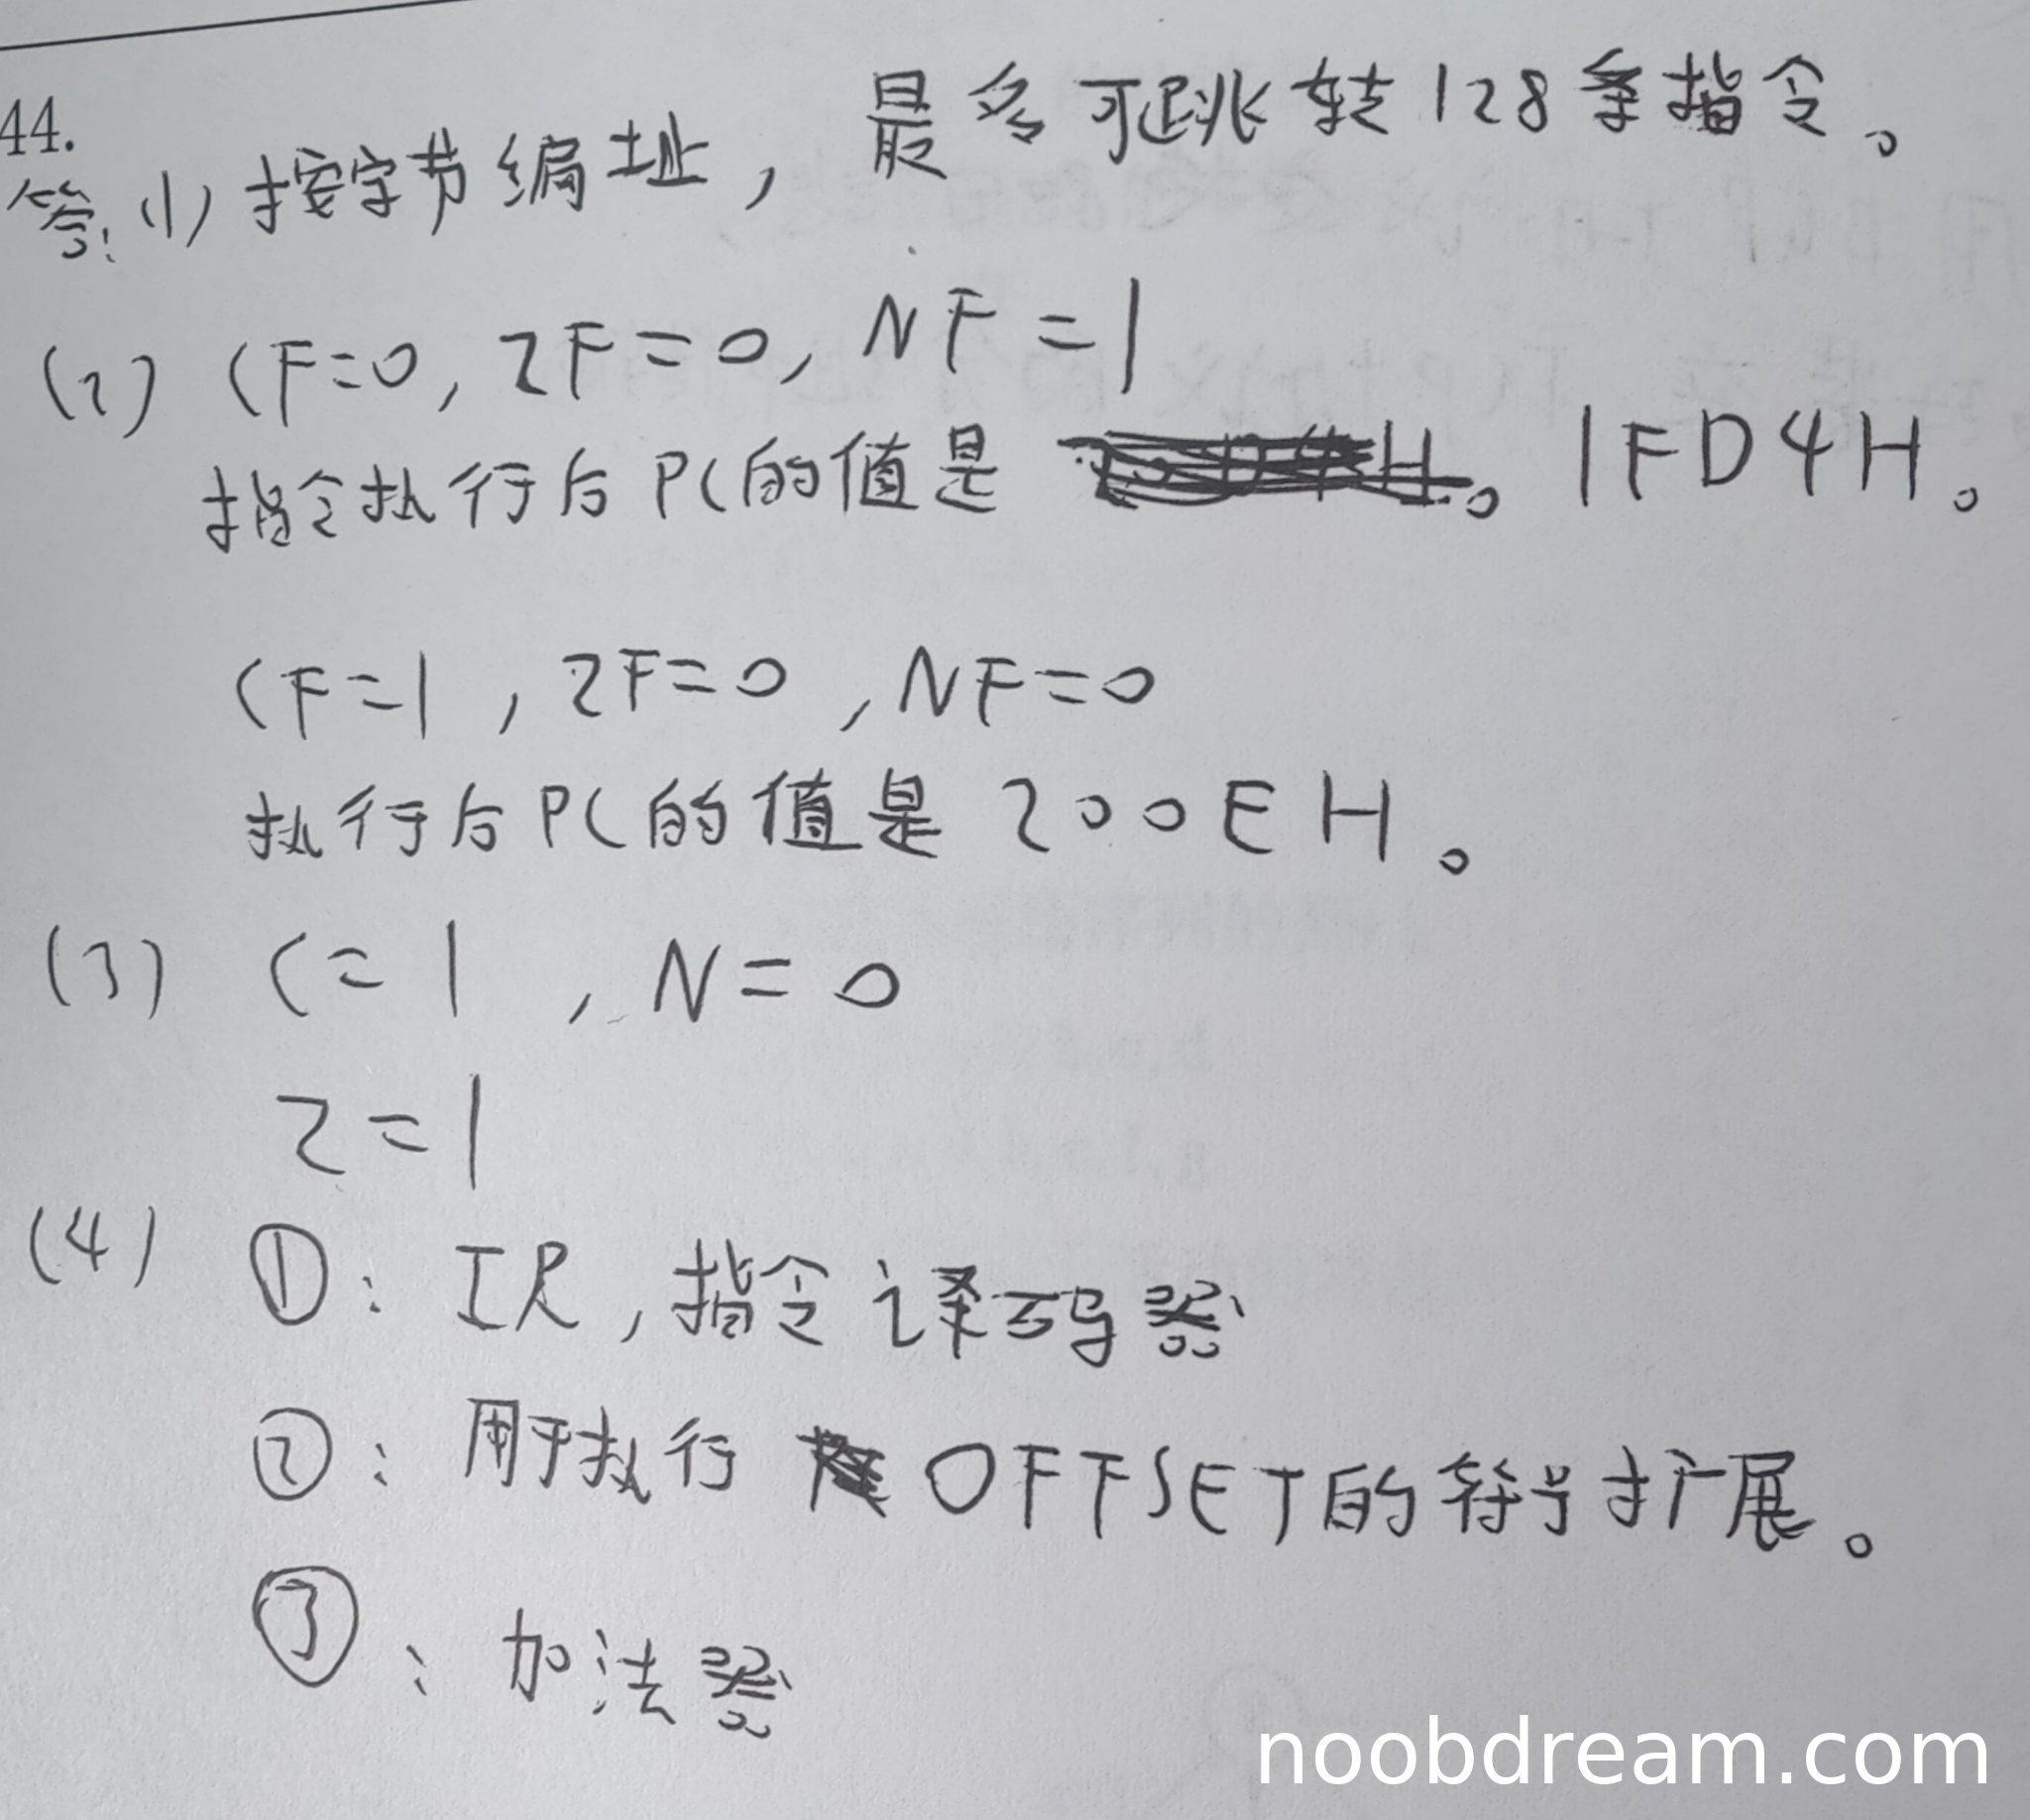 44.
答:(1) 按字节编址, 最多可跳转128条指令。
(2) CF=0, ZF=0, NF=1
指令执行后PC的值是 1FD4H。
CF=1, ZF=0, NF=0
执行后PC的值是 200EH。
(3) C=1, N=0
Z=1
(4) ①: IR, 指令译码器
②: 用于执行 OFFSET的符号扩展。
③: 加法器
noobdream.com